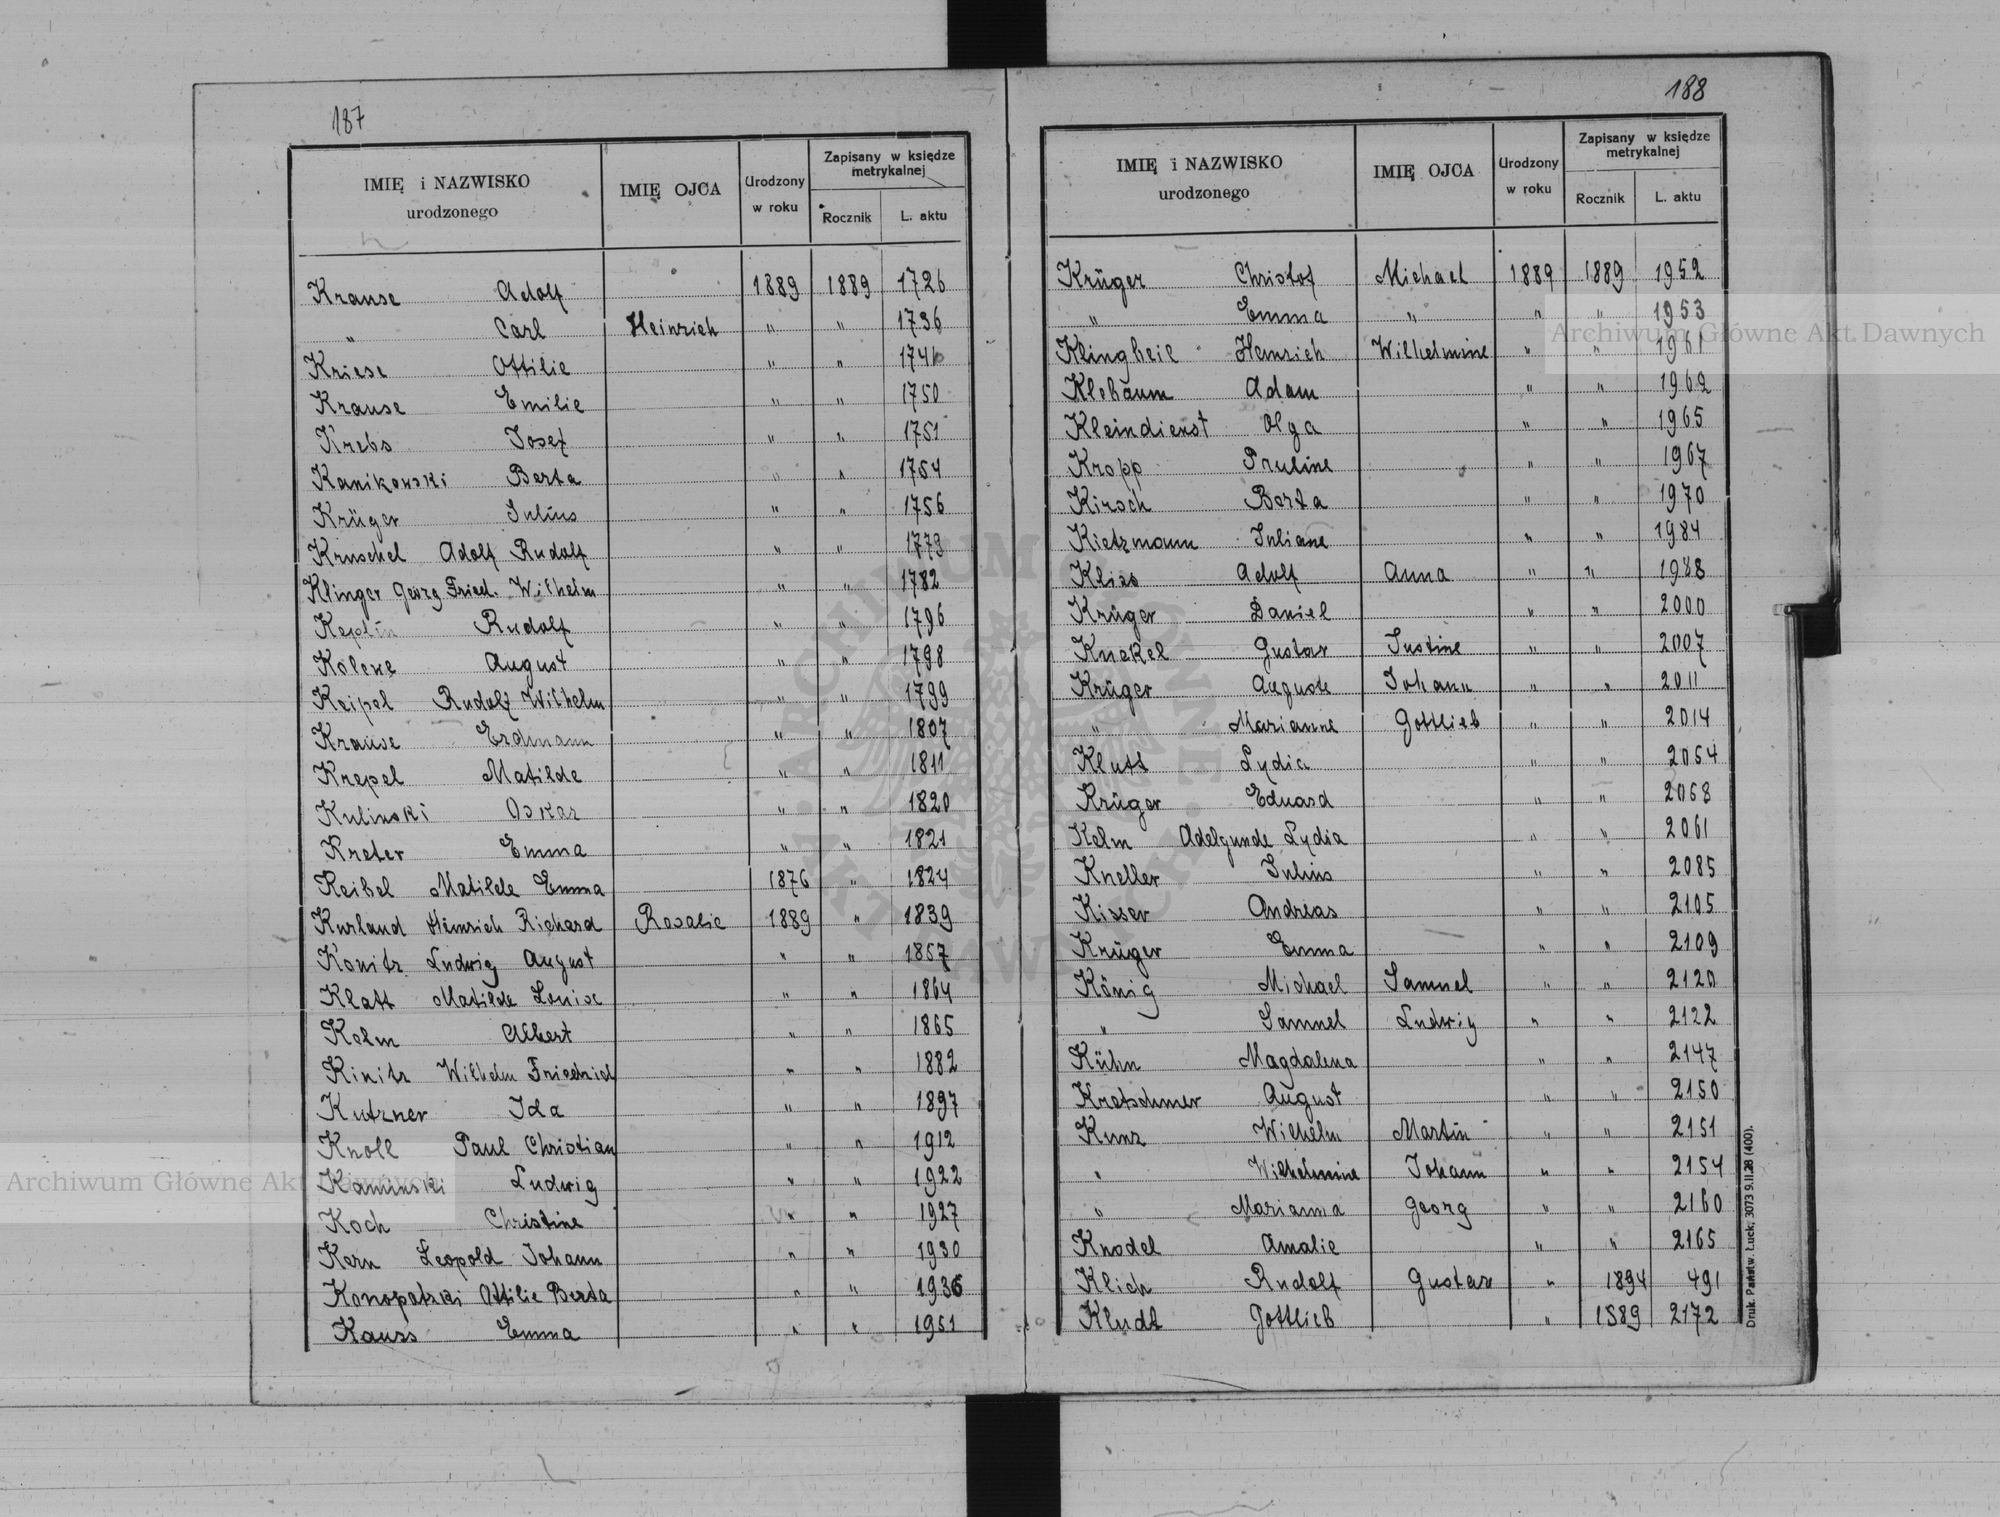 187
IMIĘ i NAZWISKO urodzonego IMIĘ OJCA Urodzony w roku Zapisany w księdze metrykalnej Rocznik L. aktu
Krause Adolf 1889 1889 1726
" Carl Heinrich " " 1736
Kriese Ottilie " " 1746
Krause Emilie " " 1750
Krebs Josef " " 1751
Kanikowski Berta " " 1754
Krüger Julius " " 1756
Kruschel Adolf Rudolf " " 1773
Klinger Georg Fried. Wilhelm " " 1782
Keplin Rudolf " " 1796
Kolene August " " 1798
Keipel Rudolf Wilhelm " " 1799
Krause Erdmann " " 1807
Krepel Matilde " " 1811
Kulinski Oskar " " 1820
Kreter Emma " " 1821
Keibel Matilde Emma 1876 " 1824
Kurland Heinrich Richard Rosalie 1889 " 1839
Konitz Ludwig August " " 1857
Klatt Matilde Louise " " 1864
Kelm Albert " " 1865
Kinitz Wilhelm Friedrich " " 1882
Kutzner Ida " " 1897
Knoll Paul Christian " " 1912
Kaminski Ludwig " " 1922
Koch Christine " " 1927
Kern Leopold Johann " " 1930
Konopatzki Ottilie Berta " " 1936
Kauss Emma " " 1951
188
IMIĘ i NAZWISKO urodzonego IMIĘ OJCA Urodzony w roku Zapisany w księdze metrykalnej Rocznik L. aktu
Krüger Christof Michael 1889 1889 1952
" Emma " " " 1953
Klingbeil Heinrich Wilhelmine " " 1961
Klebaum Adam " " 1962
Kleindienst Olga " " 1965
Kropp Pauline " " 1967
Kirsch Berta " " 1970
Kietzmann Juliane " " 1984
Kliss Adolf Anna " " 1988
Krüger Daniel " " 2000
Knekel Gustav Justine " " 2007
Krüger Auguste Johann " " 2011
" Marianne Gottlieb " " 2014
Klutt Lydia " " 2054
Krüger Eduard " " 2068
Kelm Adelgunde Lydia " " 2061
Kneller Julius " " 2085
Kisser Andreas " " 2105
Krüger Emma " " 2109
König Michael Samuel " " 2120
" Samuel Ludwig " " 2122
Kühn Magdalena " " 2147
Kretschmer August " " 2150
Kunz Wilhelm Martin " " 2151
" Wilhelmine Johann " " 2154
" Marianna Georg " " 2160
Knodel Amalie " " 2165
Klich Rudolf Gustav " 1894 491
Kludt Gottlieb " 1889 2172
Druk. Państw. Łuck, 3073 9.II.28 (400).
Archiwum Główne Akt Dawnych
Archiwum Główne Akt Dawnych